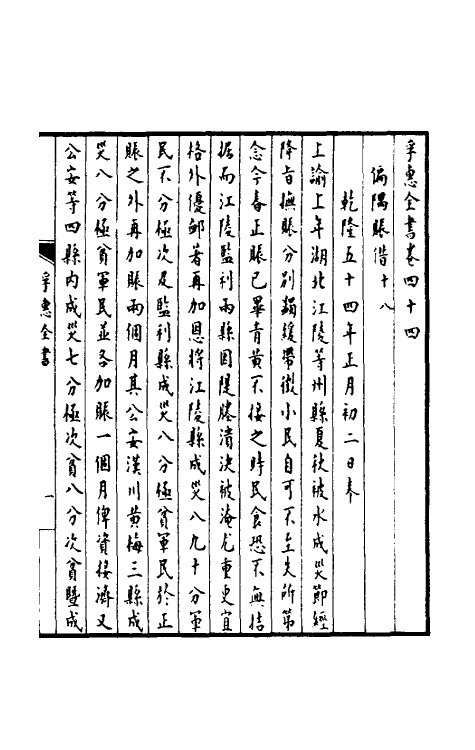 孚惠全書卷四十四
偏隅賑借十八
乾隆五十四年正月初二日奉
上諭上年湖北江陵等州縣夏秋被水成災節經
降旨撫賑分別蠲緩帶徵小民自可不至失所第
念今春正賑已畢青黃不接之時民食恐不無拮
据而江陵監利兩縣因隄塍潰決被淹尤重更宜
格外優䘏著再加恩將江陵縣成災八九十分軍
民不分極次及監利縣成災八分極貧軍民於正
賑之外再加賑兩個月其公安漢川黃梅三縣成
災八分極貧軍民並各加賑一個月俾資接濟又
公安等四縣内成災七分極次貧八分次貧暨成
孚惠全書
一